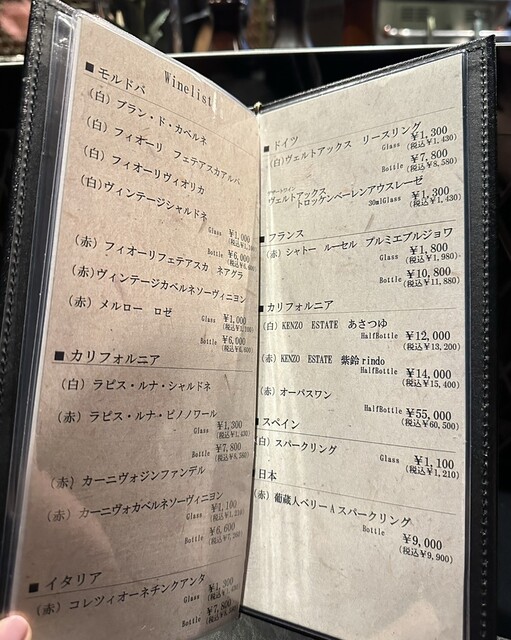 Winelist
■ モルドバ
(白) ブラン・ド・カベルネ
(白) フィオーリ フェテアスカアルバ
(白) フィオーリヴィオリカ
(白) ヴィンテージシャルドネ
Glass ¥1,000
Bottle ¥6,000
(赤) フィオーリフェテアスカ ネアグラ
(赤) ヴィンテージカベルネソーヴィニヨン
(赤) メルロー ロゼ
Glass ¥1,000
Bottle ¥6,000
■ カリフォルニア
(白) ラピス・ルナ・シャルドネ
(赤) ラピス・ルナ・ピノノワール
Glass ¥1,300
(税込¥1,430)
Bottle ¥7,800
(税込¥8,580)
(赤) カーニヴォジンファンデル
(赤) カーニヴォカベルネソーヴィニヨン
Glass ¥1,100
(税込¥1,210)
Bottle ¥6,600
(税込¥7,260)
■ イタリア
(赤) コレツィオーネチンクアンタ
Glass ¥1,300
Bottle ¥7,800
■ ドイツ
(白)ヴェルトアックス リースリング
Glass ¥1,300
(税込¥1,430)
Bottle ¥7,800
(税込¥8,580)
デザートワイン
ヴェルトアックス
トロッケンベーレンアウスレーゼ
30mlGlass ¥1,300
(税込¥1,430)
■ フランス
(赤) シャトー ルーセル プルミエブルジョワ
Glass ¥1,800
(税込¥1,980)
Bottle ¥10,800
(税込¥11,880)
■ カリフォルニア
(白) KENZO ESTATE あさつゆ
HalfBottle ¥12,000
(税込¥13,200)
(赤) KENZO ESTATE 紫鈴 rindo
HalfBottle ¥14,000
(税込¥15,400)
(赤) オーパスワン
HalfBottle ¥55,000
(税込¥60,500)
■ スペイン
(白) スパークリング
Glass ¥1,100
(税込¥1,210)
日本
(赤) 葡蔵人ベリーA スパークリング
Bottle ¥9,000
(税込¥9,900)